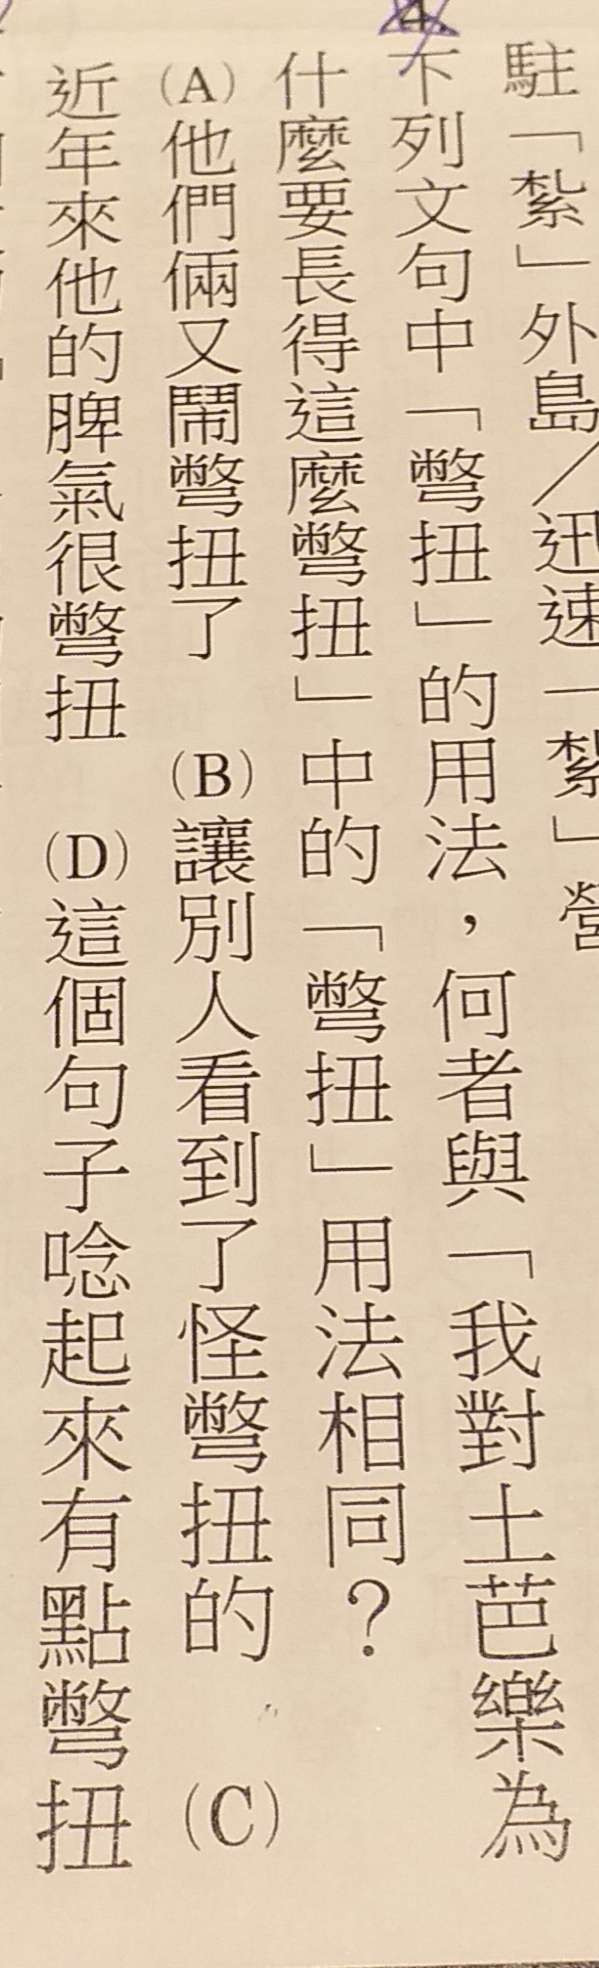 駐「紮」外島／迅速「紮」營
4.下列文句中「彆扭」的用法，何者與「我對土芭樂為
什麼要長得這麼彆扭」中的「彆扭」用法相同？
(A)他們倆又鬧彆扭了　(B)讓別人看到了怪彆扭的　(C)
近年來他的脾氣很彆扭　(D)這個句子唸起來有點彆扭